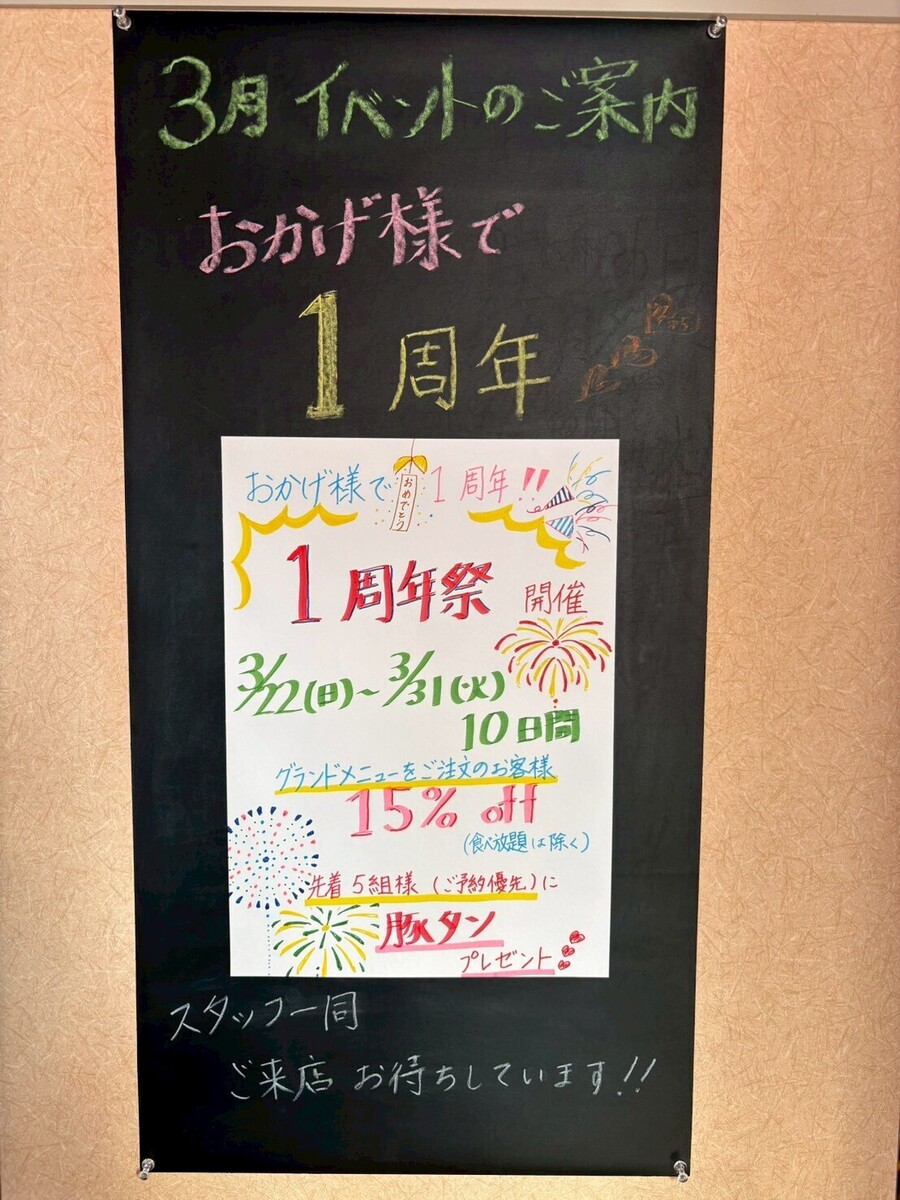 3月 イベントのご案内
おかげ様で
1周年
おかげ様で
おめでとう
1周年!!
1周年祭 開催
3/22(日)~3/31(火)
10日間
グランドメニューをご注文のお客様
15% off
(食べ放題は除く)
先着5組様(ご予約優先)に
豚タン
プレゼント
スタッフ一同
ご来店 お待ちしています!!